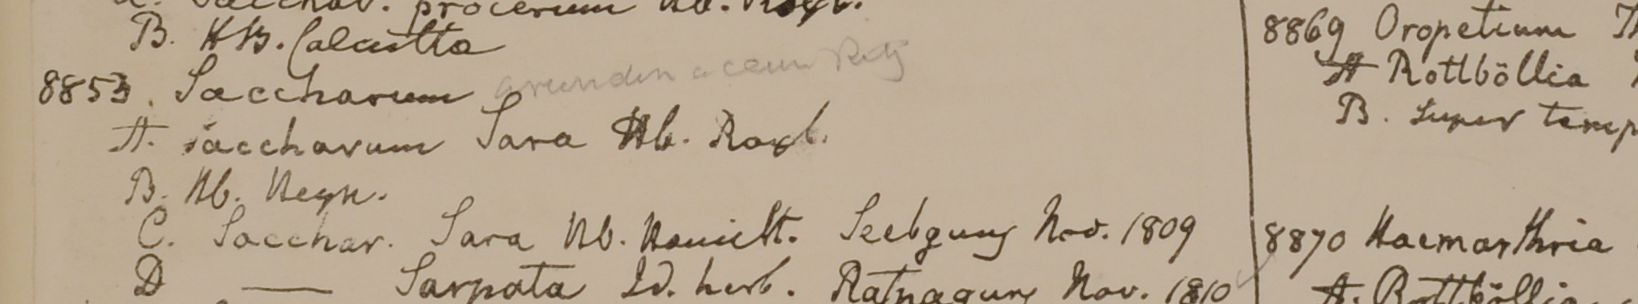 A. Sacchar. procerum Hb. Roxb.
B. HB. Calcutta
8853. Saccharum arundinaceum Retz
A. saccharum Sara Hb. Roxb.
B. Hb. Heyn.
C. Sacchar. Sara Hb. Hamilt. Seebgunj Nov. 1809
D — Sarpata Id. herb. Ratnagunj Nov. 1810
8869 Oropetium
A Rottböllia
B. super temp
8870 Haemarthria
A. Rottböllia